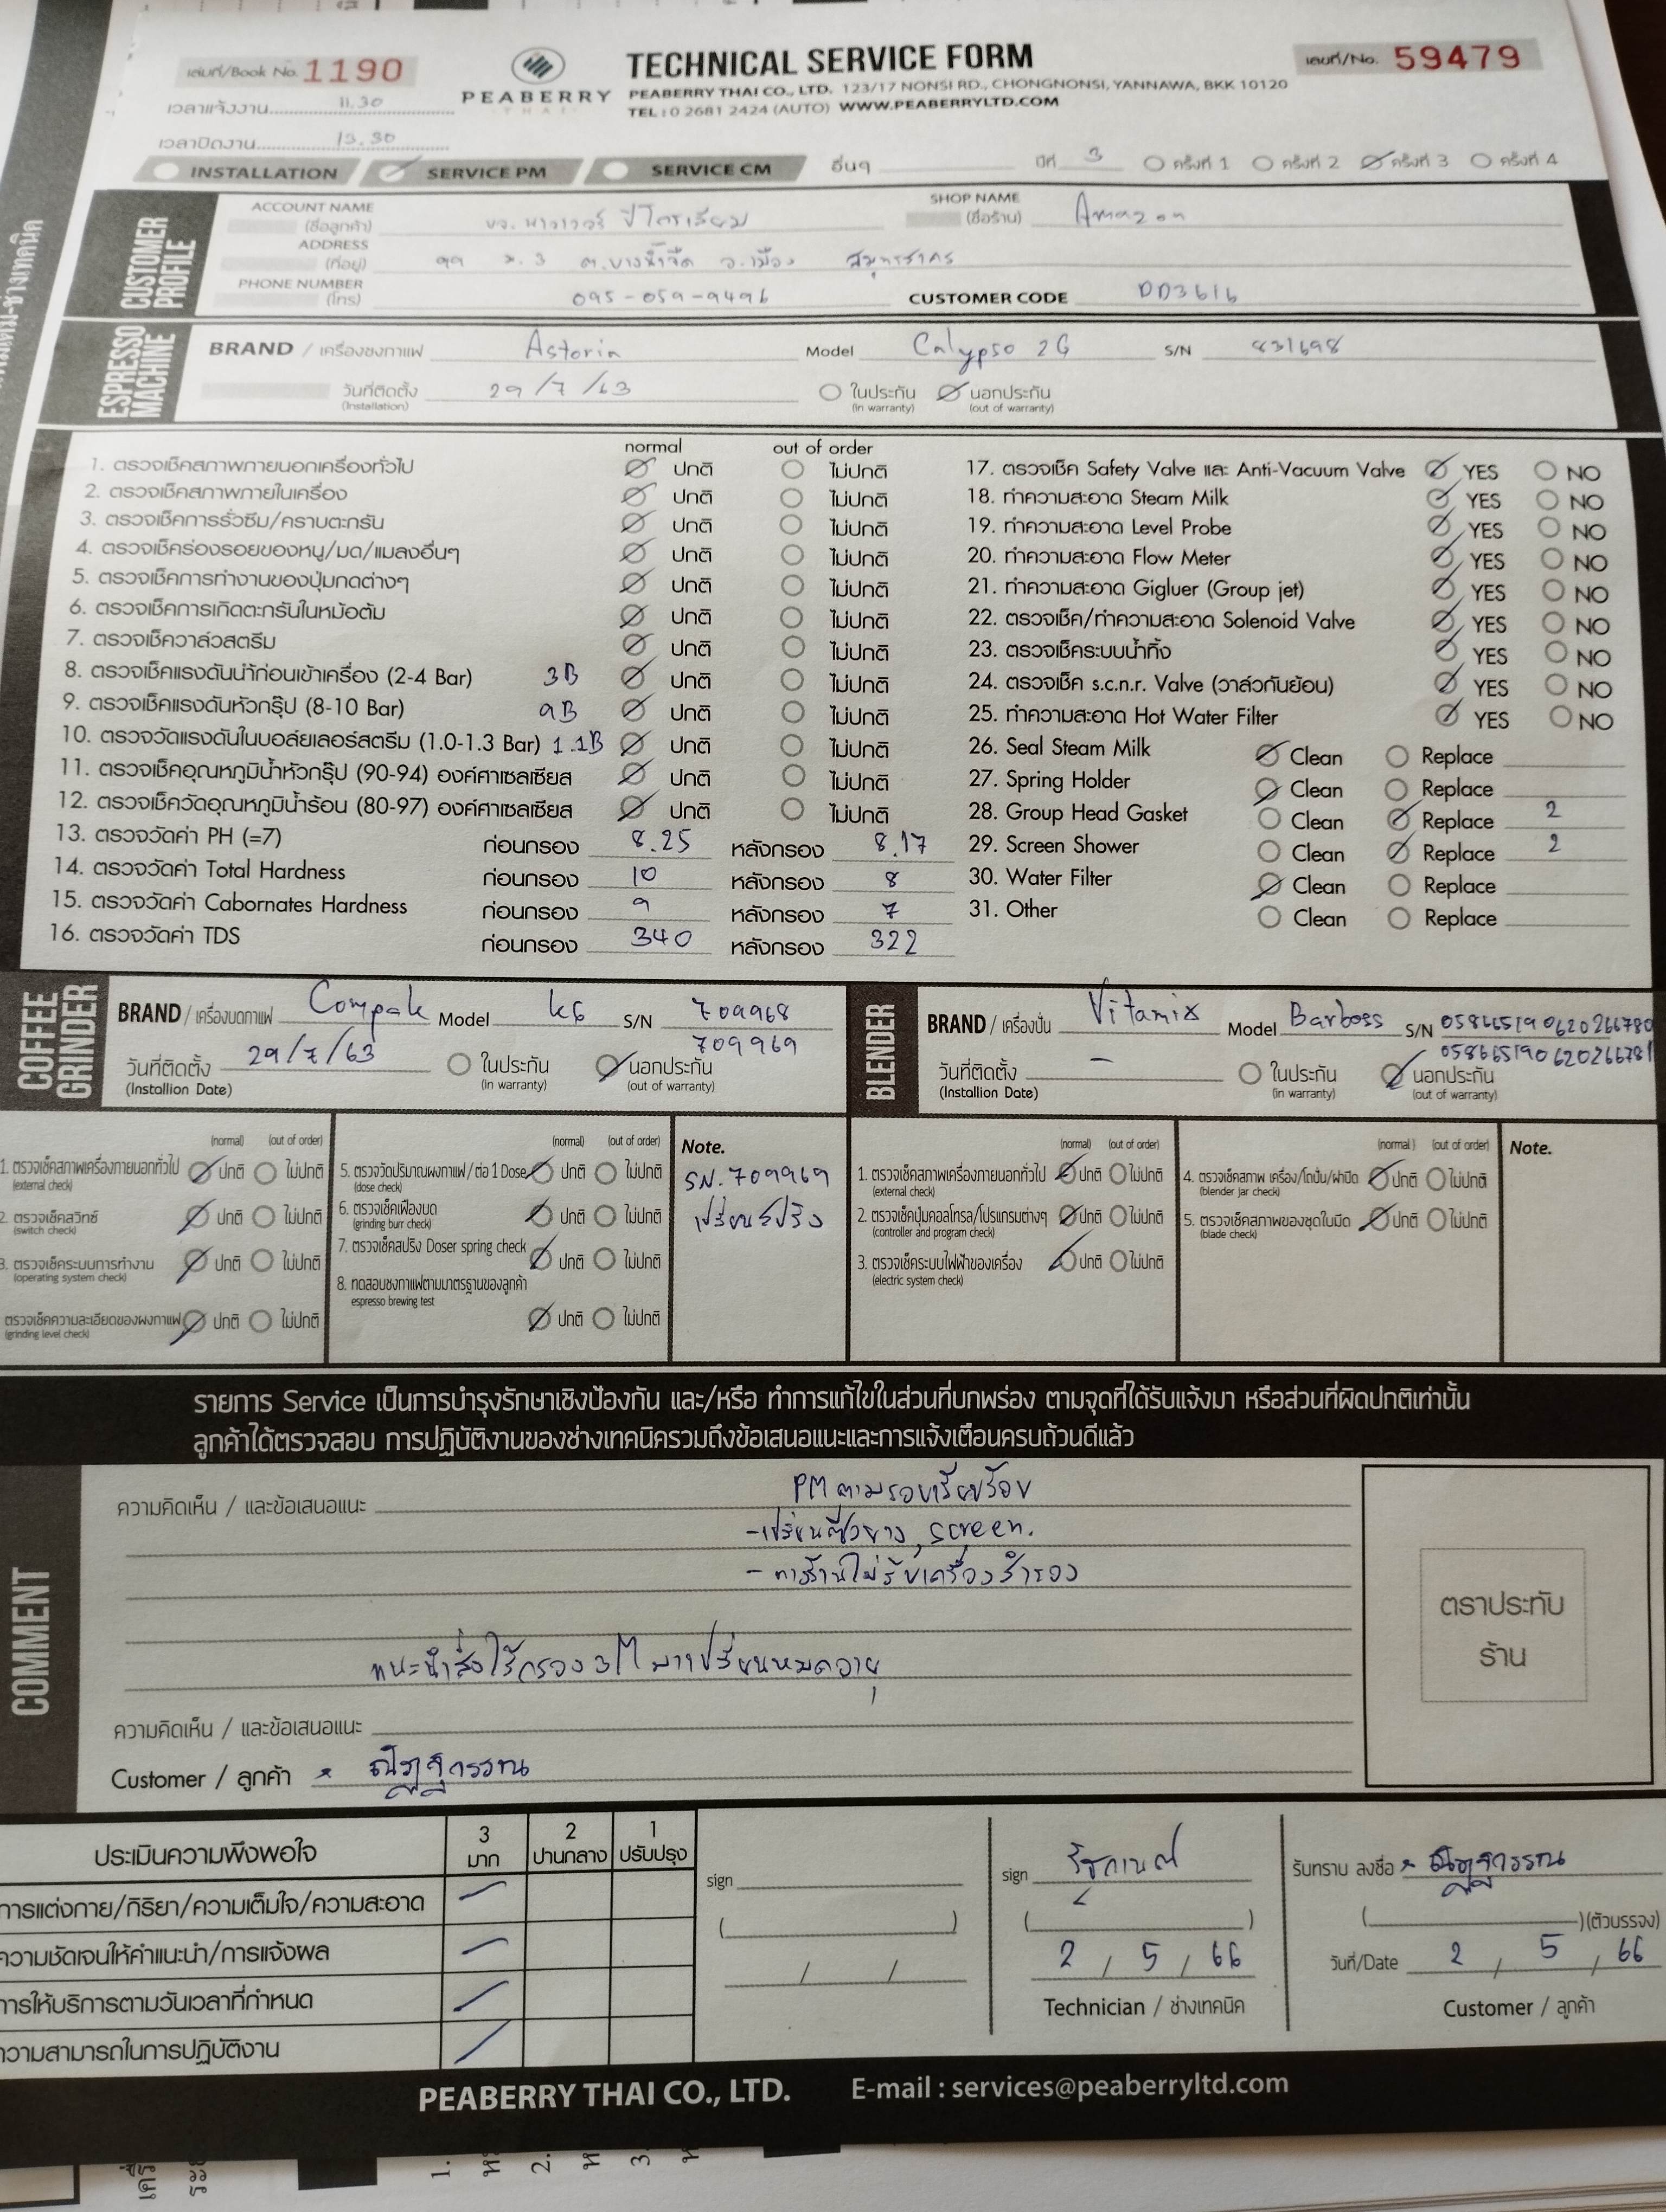 เล่มที่/Book No. 1190
PEABERRY
THAI
TECHNICAL SERVICE FORM
PEABERRY THAI CO., LTD. 123/17 NONSI RD., CHONGNONSI, YANNAWA, BKK 10120
TEL : 0 2681 2424 (AUTO) WWW.PEABERRYLTD.COM
เลขที่/No. 59479
เวลาแจ้งงาน 11.30
เวลาปิดงาน 13.30
INSTALLATION SERVICE PM SERVICE CM อื่นๆ ปีที่ 3 ครั้งที่ 1 ครั้งที่ 2 ครั้งที่ 3 ครั้งที่ 4
CUSTOMER PROFILE
ACCOUNT NAME (ชื่อลูกค้า) ปิโตรเลียม SHOP NAME (ชื่อร้าน) Amazon
ADDRESS (ที่อยู่) 99 ม.3 ต.บางน้ำจืด อ.เมือง สมุทรสาคร
PHONE NUMBER (โทร) 095-059-9496 CUSTOMER CODE DD3616
ESPRESSO MACHINE
BRAND / เครื่องชงกาแฟ Astoria Model Calypso 2G S/N 831698
วันที่ติดตั้ง (Installation) 29/7/63 ในประกัน (in warranty) นอกประกัน (out of warranty)
normal out of order
1. ตรวจเช็คสภาพภายนอกเครื่องทั่วไป ปกติ ไม่ปกติ
2. ตรวจเช็คสภาพภายในเครื่อง ปกติ ไม่ปกติ
3. ตรวจเช็คการรั่วซึม/คราบตะกรัน ปกติ ไม่ปกติ
4. ตรวจเช็คร่องรอยของหนู/มด/แมลงอื่นๆ ปกติ ไม่ปกติ
5. ตรวจเช็คการทำงานของปุ่มกดต่างๆ ปกติ ไม่ปกติ
6. ตรวจเช็คการเกิดตะกรันในหม้อต้ม ปกติ ไม่ปกติ
7. ตรวจเช็ควาล์วสตรีม ปกติ ไม่ปกติ
8. ตรวจเช็คแรงดันน้ำก่อนเข้าเครื่อง (2-4 Bar) 3B ปกติ ไม่ปกติ
9. ตรวจเช็คแรงดันหัวกรุ๊ป (8-10 Bar) 9B ปกติ ไม่ปกติ
10. ตรวจวัดแรงดันในบอล์ยเลอร์สตรีม (1.0-1.3 Bar) 1.1B ปกติ ไม่ปกติ
11. ตรวจเช็คอุณหภูมิน้ำหัวกรุ๊ป (90-94) องค์ศาเซลเซียส ปกติ ไม่ปกติ
12. ตรวจเช็ควัดอุณหภูมิน้ำร้อน (80-97) องค์ศาเซลเซียส ปกติ ไม่ปกติ
13. ตรวจวัดค่า PH (=7) ก่อนกรอง 8.25 หลังกรอง 8.17
14. ตรวจวัดค่า Total Hardness ก่อนกรอง 10 หลังกรอง 8
15. ตรวจวัดค่า Cabornates Hardness ก่อนกรอง 9 หลังกรอง 7
16. ตรวจวัดค่า TDS ก่อนกรอง 340 หลังกรอง 322
17. ตรวจเช็ค Safety Valve และ Anti-Vacuum Valve YES NO
18. ทำความสะอาด Steam Milk YES NO
19. ทำความสะอาด Level Probe YES NO
20. ทำความสะอาด Flow Meter YES NO
21. ทำความสะอาด Gigluer (Group jet) YES NO
22. ตรวจเช็ค/ทำความสะอาด Solenoid Valve YES NO
23. ตรวจเช็คระบบน้ำทิ้ง YES NO
24. ตรวจเช็ค s.c.n.r. Valve (วาล์วกันย้อน) YES NO
25. ทำความสะอาด Hot Water Filter YES NO
26. Seal Steam Milk Clean Replace
27. Spring Holder Clean Replace
28. Group Head Gasket Clean Replace 2
29. Screen Shower Clean Replace 2
30. Water Filter Clean Replace
31. Other Clean Replace
COFFEE GRINDER
BRAND / เครื่องบดกาแฟ Compak Model k6 S/N 709968
709969
วันที่ติดตั้ง (Installion Date) 29/7/63 ในประกัน (in warranty) นอกประกัน (out of warranty)
BLENDER
BRAND / เครื่องปั่น Vitamix Model Barboss S/N 058665190620266780
058665190620266781
วันที่ติดตั้ง (Installion Date) - ในประกัน (in warranty) นอกประกัน (out of warranty)
(normal) (out of order)
1. ตรวจเช็คสภาพเครื่องภายนอกทั่วไป (external check) ปกติ ไม่ปกติ
2. ตรวจเช็คสวิทช์ (switch check) ปกติ ไม่ปกติ
3. ตรวจเช็คระบบการทำงาน (operating system check) ปกติ ไม่ปกติ
ตรวจเช็คความละเอียดของผงกาแฟ (grinding level check) ปกติ ไม่ปกติ
(normal) (out of order)
5. ตรวจวัดปริมาณผงกาแฟ/ต่อ 1 Dose (dose check) ปกติ ไม่ปกติ
6. ตรวจเช็คเฟืองบด (grinding burr check) ปกติ ไม่ปกติ
7. ตรวจเช็คสปริง Doser spring check ปกติ ไม่ปกติ
8. ทดสอบชงกาแฟตามมาตรฐานของลูกค้า espresso brewing test ปกติ ไม่ปกติ
Note.
SN.709969
เปลี่ยนสปริง
(normal) (out of order)
1. ตรวจเช็คสภาพเครื่องภายนอกทั่วไป (external check) ปกติ ไม่ปกติ
2. ตรวจเช็คปุ่มคอลโทรล/โปรแกรมต่างๆ (controller and program check) ปกติ ไม่ปกติ
3. ตรวจเช็คระบบไฟฟ้าของเครื่อง (electric system check) ปกติ ไม่ปกติ
(normal) (out of order)
4. ตรวจเช็คสภาพ เครื่อง/โถปั่น/ฝาปิด (blender jar check) ปกติ ไม่ปกติ
5. ตรวจเช็คสภาพของชุดใบมีด (blade check) ปกติ ไม่ปกติ
Note.
รายการ Service เป็นการบำรุงรักษาเชิงป้องกัน และ/หรือ ทำการแก้ไขในส่วนที่บกพร่อง ตามจุดที่ได้รับแจ้งมา หรือส่วนที่ผิดปกติเท่านั้น
ลูกค้าได้ตรวจสอบ การปฏิบัติงานของช่างเทคนิครวมถึงข้อเสนอแนะและการแจ้งเตือนครบถ้วนดีแล้ว
COMMENT
ความคิดเห็น / และข้อเสนอแนะ PM ตามรอบเรียบร้อย
-เปลี่ยนซีลยาง, screen.
- ทางร้านไม่รับเครื่องสำรอง
แนะนำสั่งไส้กรอง 3M มาเปลี่ยนหมดอายุ
ความคิดเห็น / และข้อเสนอแนะ
Customer / ลูกค้า ณัฎฐวรรณ
ตราประทับ
ร้าน
ประเมินความพึงพอใจ 3 มาก 2 ปานกลาง 1 ปรับปรุง
การแต่งกาย/กิริยา/ความเต็มใจ/ความสะอาด
ความชัดเจนให้คำแนะนำ/การแจ้งผล
การให้บริการตามวันเวลาที่กำหนด
ความสามารถในการปฏิบัติงาน
sign
( )
/ /
sign
( )
2 / 5 / 66
Technician / ช่างเทคนิค
รับทราบ ลงชื่อ ณัฎฐวรรณ
( ) (ตัวบรรจง)
วันที่/Date 2 / 5 / 66
Customer / ลูกค้า
PEABERRY THAI CO., LTD. E-mail : services@peaberryltd.com